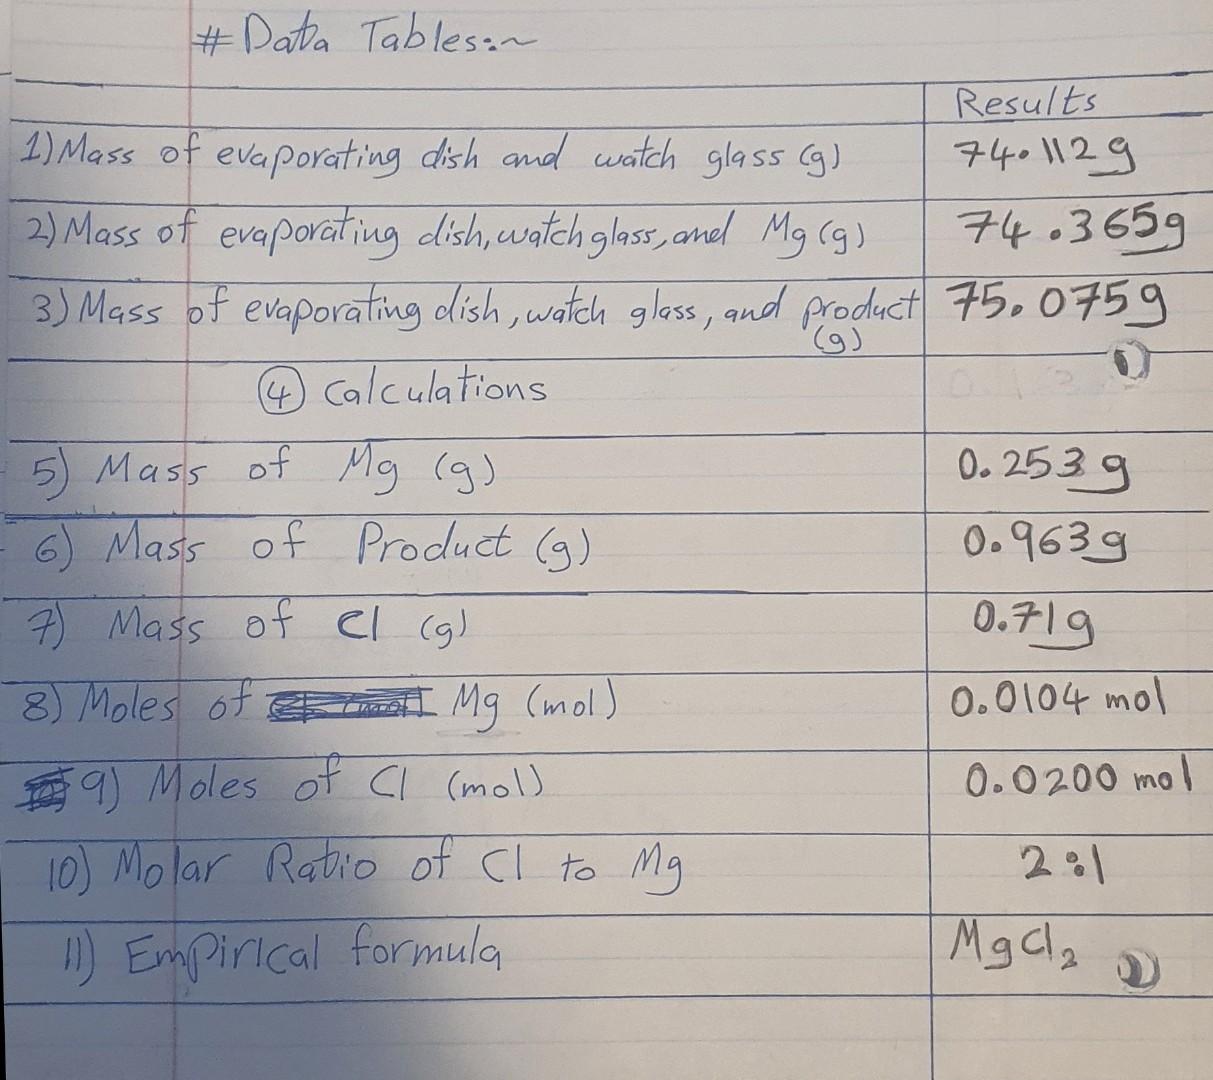 # Data Tables:~
Results
1) Mass of evaporating dish and watch glass (g) 74.112g
2) Mass of evaporating dish, watch glass, and Mg (g) 74.365g
3) Mass of evaporating dish, watch glass, and product 75.075g
(g)
④ Calculations
5) Mass of Mg (g) 0.253g
6) Mass of Product (g) 0.963g
7) Mass of Cl (g) 0.71g
8) Moles of Mg (mol) 0.0104 mol
9) Moles of Cl (mol) 0.0200 mol
10) Molar Ratio of Cl to Mg 2:1
11) Empirical formula MgCl₂